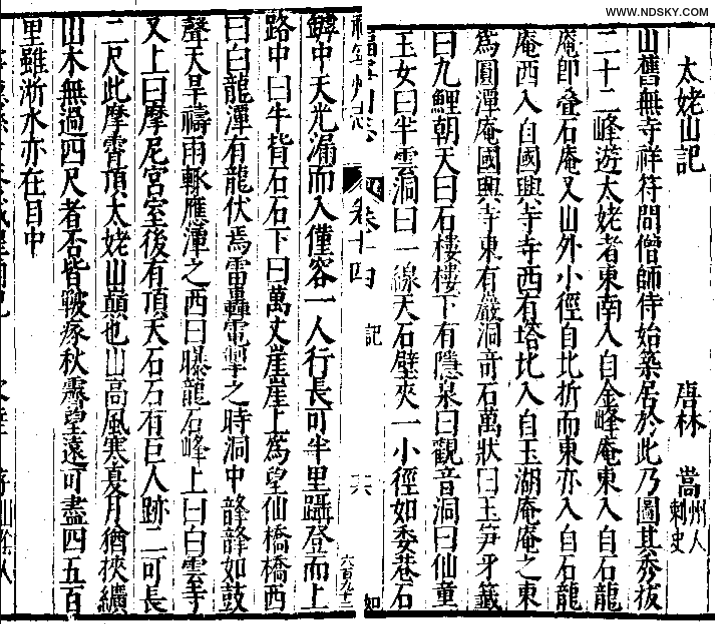 WWW.NDSKY.COM
太姥山記
唐林嵩 州人刺史
山舊無寺祥符間僧師待始築居於此乃圖其秀拔
二十二峰遊太姥者東南入自金峰庵東入自石龍
庵即疊石庵又山外小徑自北折而東亦入自石龍
庵西入自國興寺寺西有塔北入自玉湖庵庵之東
為圓潭庵國興寺東有巖洞奇石萬狀曰玉笋牙籤
曰九鯉朝天曰石樓樓下有隱泉曰觀音洞曰仙童
玉女曰半雲洞曰一線天石壁夾一小徑如委巷石
福寧州志 卷十四 記 六
六百九十二
罅中天光漏而入僅容一人行長可半里躡登而上
路中曰牛背石石下曰萬丈崖崖上為望仙橋橋西
曰白龍潭有龍伏焉雷轟電掣之時洞中韸韸如鼓
聲天旱禱雨輒應潭之西曰曝龍石峰上曰白雲寺
又上曰摩尼宮室後有頂天石石有巨人跡二可長
二尺此摩霄頂太姥山巔也山高風寒夏月猶挾纊
山木無過四尺者石皆皺瘃秋霽望遠可盡四五百
里雖浙水亦在目中